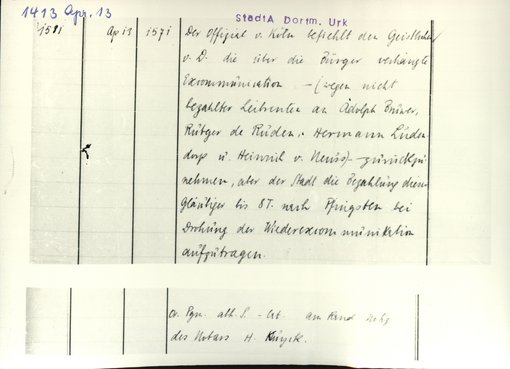 1413 Apr. 13
StadtA Dortm. Urk
Ap 13 1571 Der Offizial v. Köln befiehlt den Geistlichen
v. D. die über die Bürger verhängte
Excommunication – (wegen nicht
bezahlter Leibrenten an Adolph
Rütger de Rüden, Hermann Lüden
dorp u. Heinrich v. Neuss) – zurückzu
nehmen, aber der Stadt die Bezahlung
Gläubiger bis 8 T. nach Pfingsten bei
Drohung der Wiederexcommunikation
aufzutragen.
Or. Pgm. abh. S. – am Rand
des Notars H.